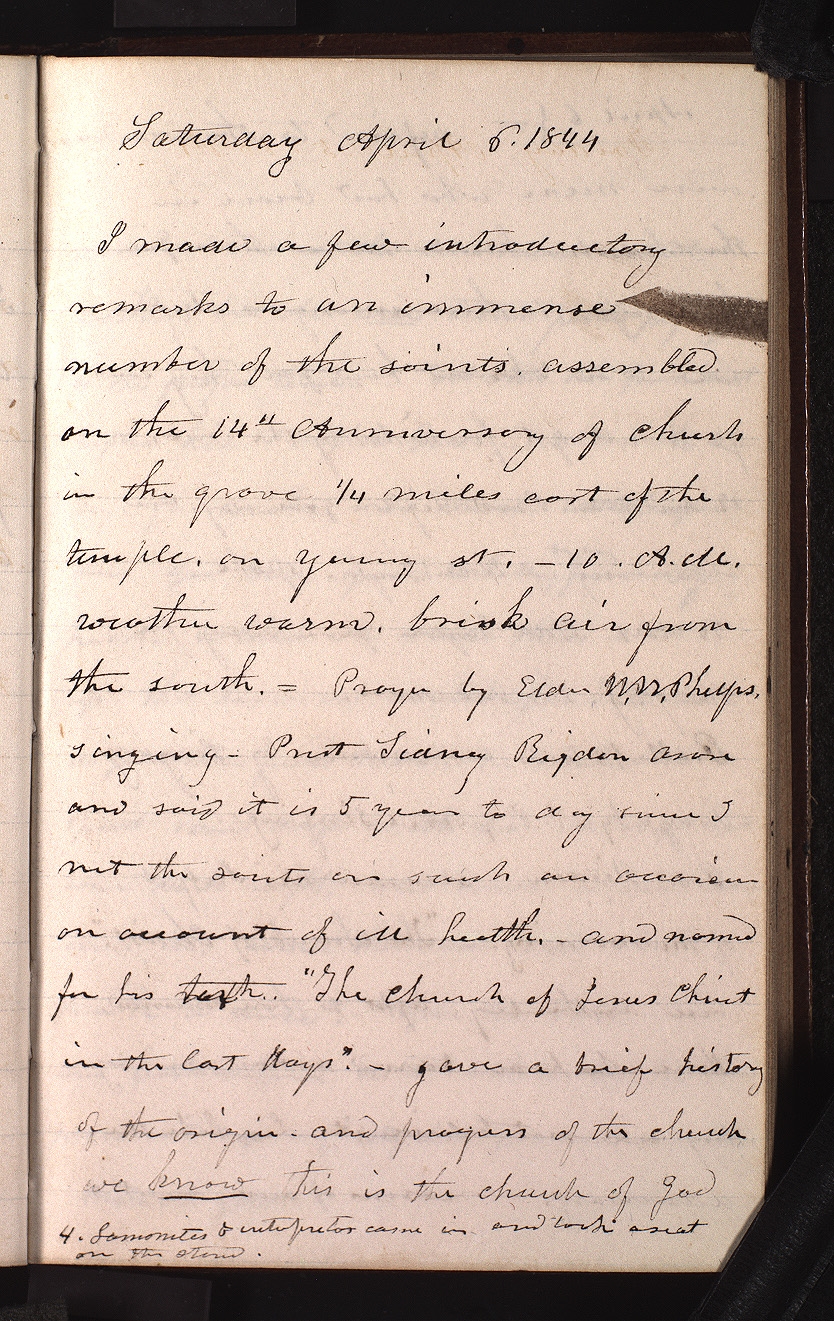 Saturday April 6. 1844
I made a few introductory
remarks to an immense
number of the saints. assembled
on the 14th Anniversary of church
in the grove 1/4 miles east of the
temple. on young st. – 10. A.M.
weather warm. brisk air from
the south. = Prayer by Elder W. W. Phelps,
singing – Prest Sidney Rigdon arose
and said it is 5 years to day since I
met the saints on such an occasion
on account of ill health. – and named
for his text.. "The church of Jesus Christ
in the last days". – gave a brief history
of the origin – and progress of the church
we know this is the church of God
4. Lamonites & interpretor came in and took a seat
on the stand.